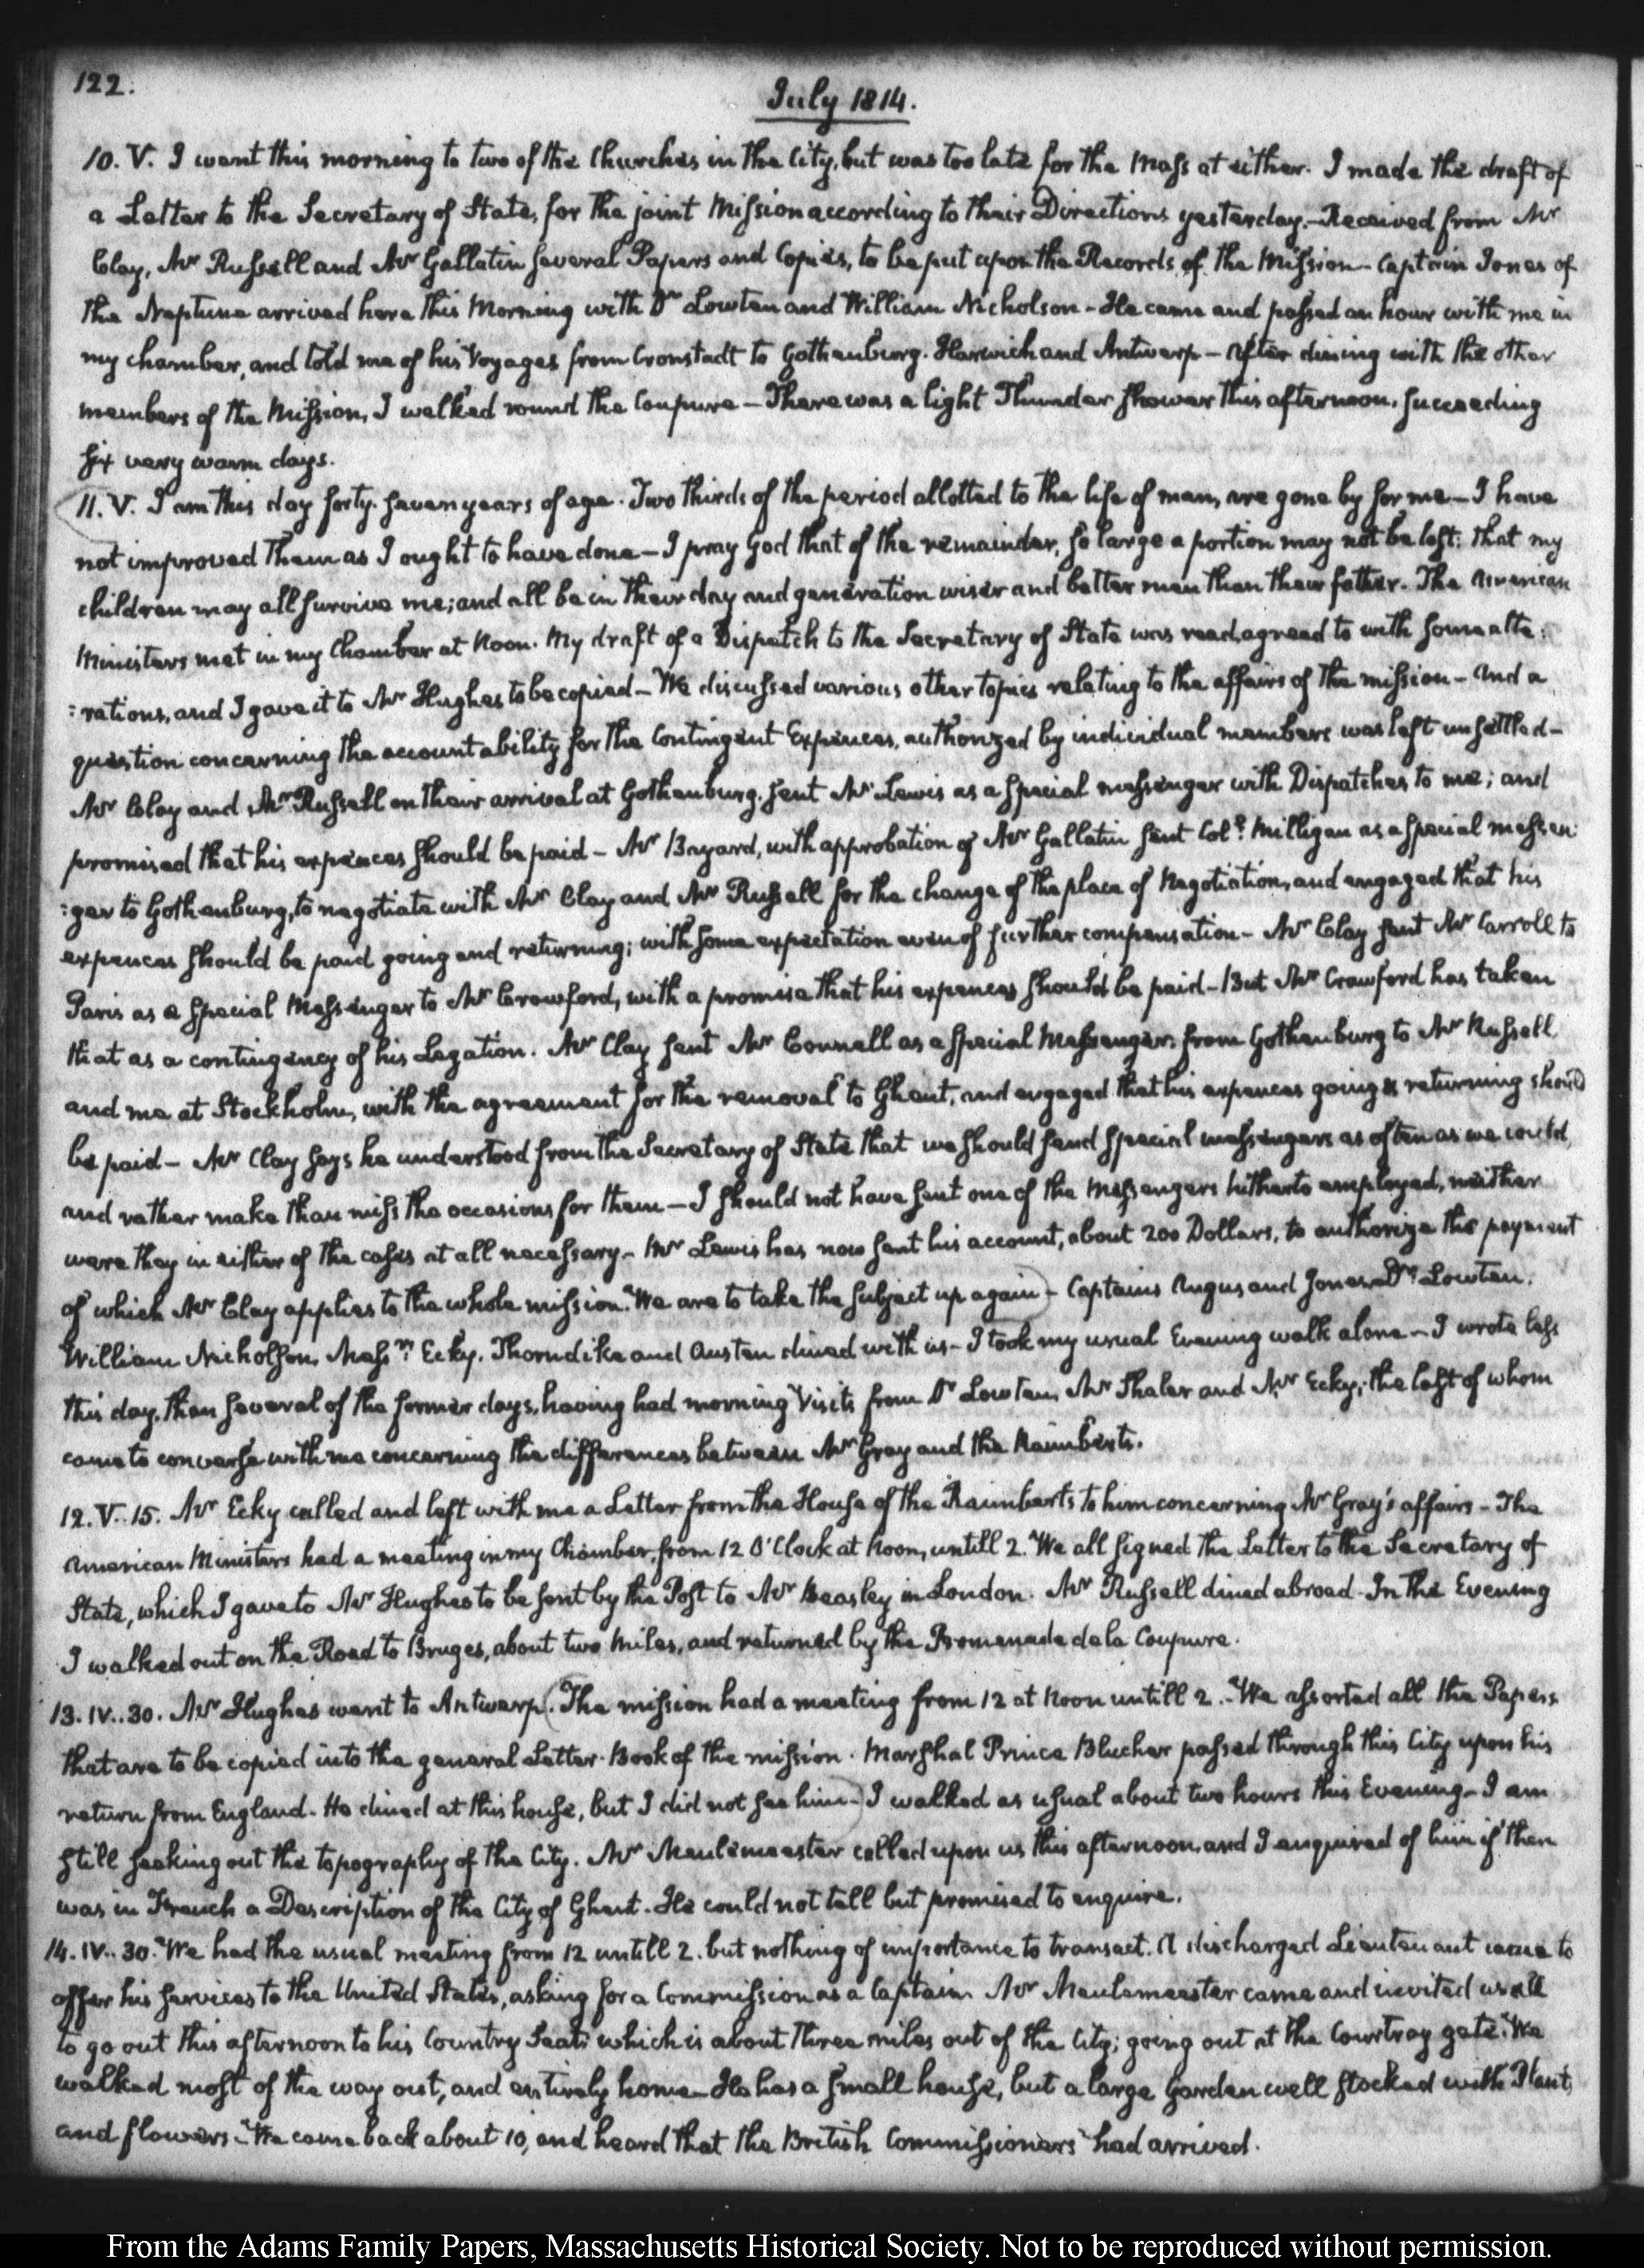 122.
July 1814.
10. V. I went this morning to two of the Churches in the City, but was too late for the Mass at either. I made the draft of
a Letter to the Secretary of State, for the joint Mission according to their Directions yesterday.—Received from Mr
Clay, Mr Russell and Mr Gallatin several Papers and Copies, to be put upon the Records of the Mission—Captain Jones of
the Neptune arrived here this Morning with Dr Lowten and William Nicholson—He came and passed an hour with me in
my chamber, and told me of his Voyages from Cronstadt to Gothenburg. Harwich and Antwerp—After dining with the other
members of the Mission, I walked round the Coupure—There was a light Thunder shower this afternoon, succeeding
six very warm days.
11. V. I am this day forty-seven years of age. Two thirds of the period allotted to the life of man, are gone by for me—I have
not improved them as I ought to have done—I pray God that of the remainder, so large a portion may not be lost: that my
children may all survive me; and all be in their day and generation wiser and better men than their father. The American
Ministers met in my Chamber at Noon. My draft of a Dispatch to the Secretary of State was read, agreed to with some alte:
:rations, and I gave it to Mr Hughes to be copied—We discussed various other topics relating to the affairs of the mission—And a
question concerning the accountability for the Contingent Expences, authorized by individual members was left unsettled—
Mr Clay and Mr Russell on their arrival at Gothenburg. sent Mr Lewis as a special messenger with Dispatches to me; and
promised that his expences should be paid—Mr Bayard, with approbation of Mr Gallatin sent Coll. Milligan as a special messen:
:ger to Gothenburg, to negotiate with Mr Clay and Mr Russell for the change of the place of Negotiation, and engaged that his
expences should be paid going and returning; with some expectation even of further compensation—Mr Clay sent Mr Carroll to
Paris as a special Messenger to Mr Crawford, with a promise that his expences should be paid—But Mr Crawford has taken
that as a contingency of his Legation. Mr Clay sent Mr Connell as a special Messenger, from Gothenburg to Mr Russell
and me at Stockholm, with the agreement for the removal to Ghent, and engaged that his expences going & returning should
be paid—Mr Clay says he understood from the Secretary of State that we should send special messengers as often as we could,
and rather make than miss the occasions for them—I should not have sent one of the Messengers hitherto employed, neither
were they in either of the cases at all necessary—Mr Lewis has now sent his account, about 200 Dollars, to authorize the payment
of which Mr Clay applies to the whole mission. We are to take the subject up again—Captains Angus and Jones, Dr Lowten,
William Nicholson, Messrs Ecky, Thorndike and Austen dined with us—I took my usual Evening walk alone—I wrote less
this day, than several of the former days, having had morning Visits from Dr Lowten, Mr Shaler and Mr Ecky; the last of whom
came to converse with me concerning the differences between Mr Gray and the Raimberts.
12. V..15. Mr Ecky called and left with me a Letter from the House of the Raimberts to him concerning Mr Gray's affairs—The
American Ministers had a meeting in my Chamber, from 12 O'Clock at Noon, untill 2. We all signed the Letter to the Secretary of
State, which I gave to Mr Hughes to be sent by the Post to Mr Beasley in London. Mr Russell dined abroad—In the Evening
I walked out on the Road to Bruges, about two Miles, and returned by the Promenade de la Coupure.
13. IV..30. Mr Hughes went to Antwerp. The mission had a meeting from 12 at Noon untill 2.—We assorted all the Papers
that are to be copied into the general Letter-Book of the mission. Marshal Prince Blucher passed through this City upon his
return from England—He dined at this house, but I did not see him—I walked as usual about two hours this Evening—I am
still seeking out the topography of the City. Mr Meulemeester called upon us this afternoon, and I enquired of him if there
was in French a Description of the City of Ghent. He could not tell but promised to enquire.
14. IV..30. We had the usual meeting from 12 untill 2. but nothing of importance to transact. A discharged Lieutenant came to
offer his services to the United States, asking for a Commission as a Captain Mr Meulemeester came and invited us all
to go out this afternoon to his Country Seat; which is about three miles out of the City; going out at the Courtray gate. We
walked most of the way out, and entirely home—He has a small house, but a large Garden well stocked with Plants
and flowers—We came back about 10, and heard that the British Commissioners had arrived.
From the Adams Family Papers, Massachusetts Historical Society. Not to be reproduced without permission.